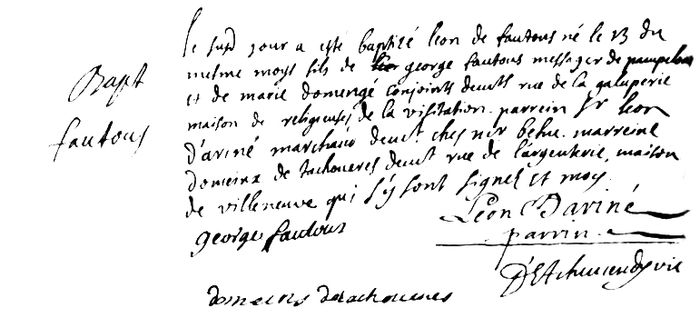 Bapt
fautous
le susd jour a este baptizé leon de fautous né le 13 du
mesme moys fils de george fautous messager de pampelune
et de marie domengé conjoints demts rue de la galuperie
maison de religieuses de la visitation. parrein Sr leon
d'ariné marchand demt. ches mr behic. marreine
domeinx de tachoueres demt rue de l'argenterie, maison
de villeneuve qui s'y sont signés et moy.
george fautous
Léon Dariné
parrin
domeins detachoueres